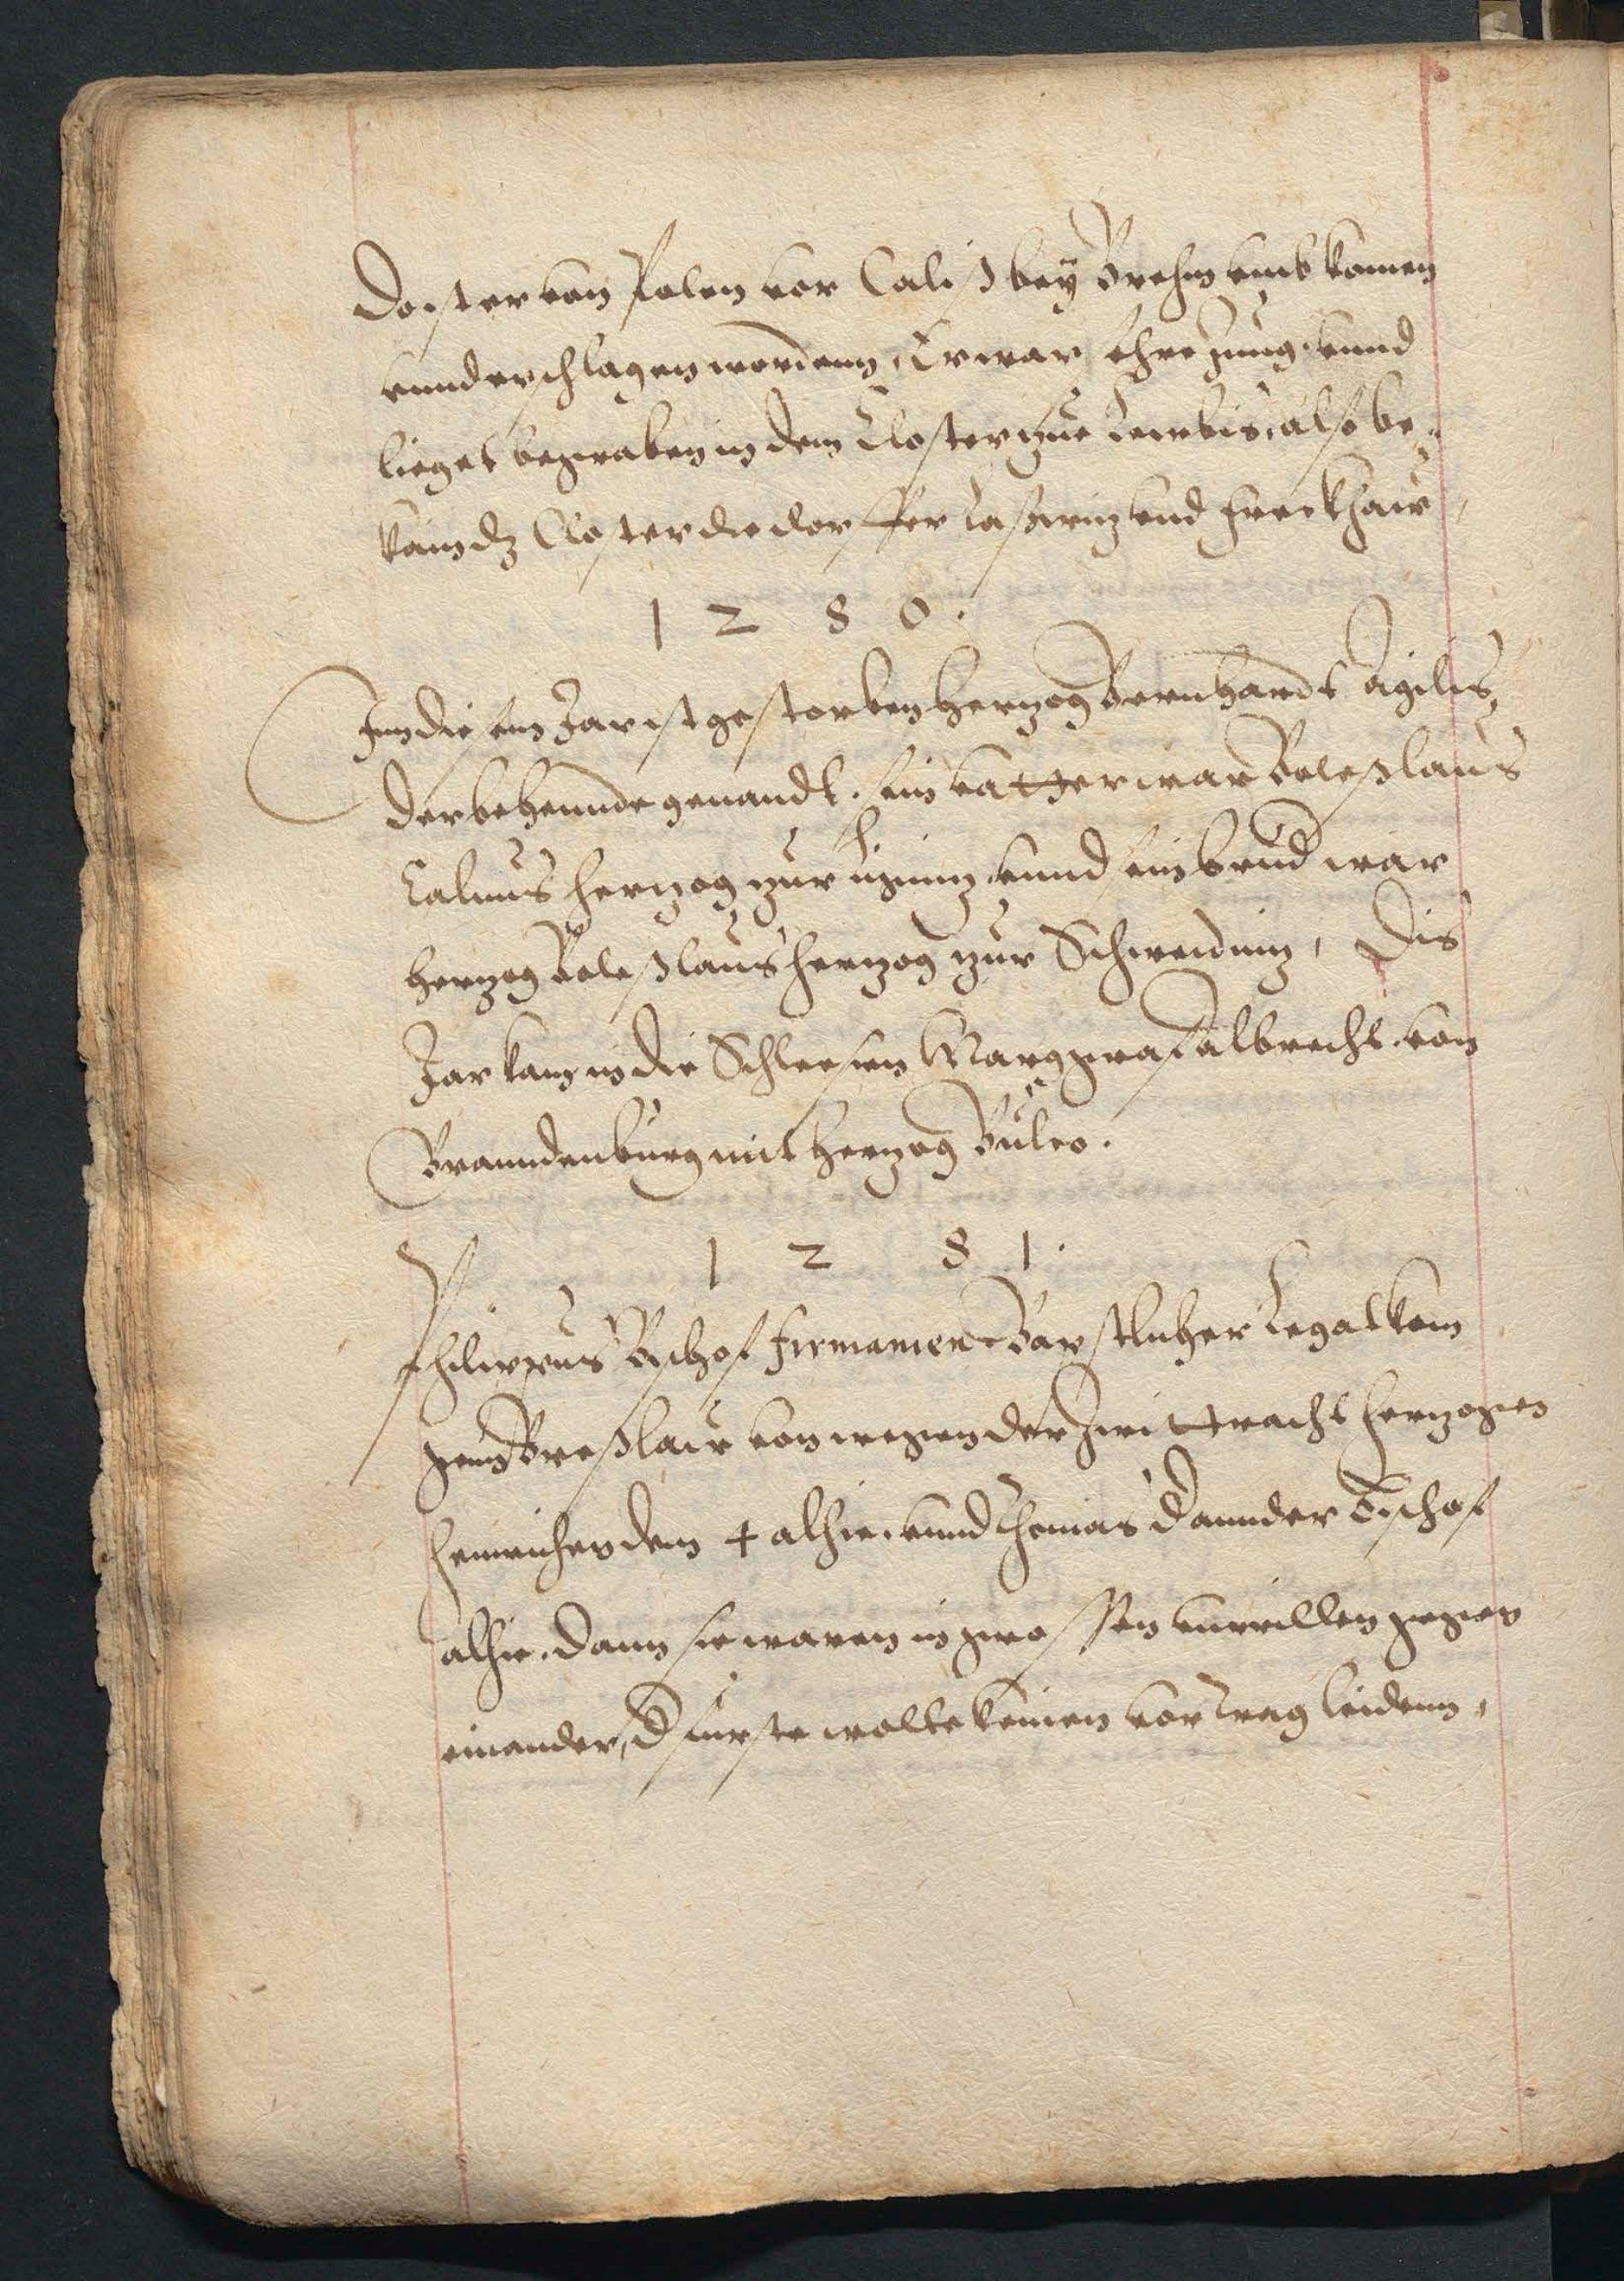 Do ist er von Polen vor Calis bey Brehm umb komen
unnd erschlagen wordenn, Er war ohre Jung, unnd
lieget begraben in dem Closter zue Leubis, also be¬
kam dz Closter die dorffer Laswiz und Heerkhaw
1 2 8 0.
Inn diesem Jar ist gestorben Hertzog Bernhardt Agilis
der behennde genandt. sein vatter war Boleslaus
Calvus Hertzog zur Ligniz unnd sein brud war
Hertzog Boleslaus Hertzog zur Schweidniz, Dis
Jar kam in die Schlesien Marggraf Albrecht von
Branndenburg mit Hertzog Bulco.
1 2 8 1.
Philippus Bischof Firmanien Babstlicher Legat kam
gen Breslaw von wegen der Zwittracht Hertzogen
Heinrichen dem 4 alhie. unnd Thomas dannder Bischof
alhie. dann sie waren in grossen unwillen gegen
einander, d furste wolte keinen vortrag leidenn,